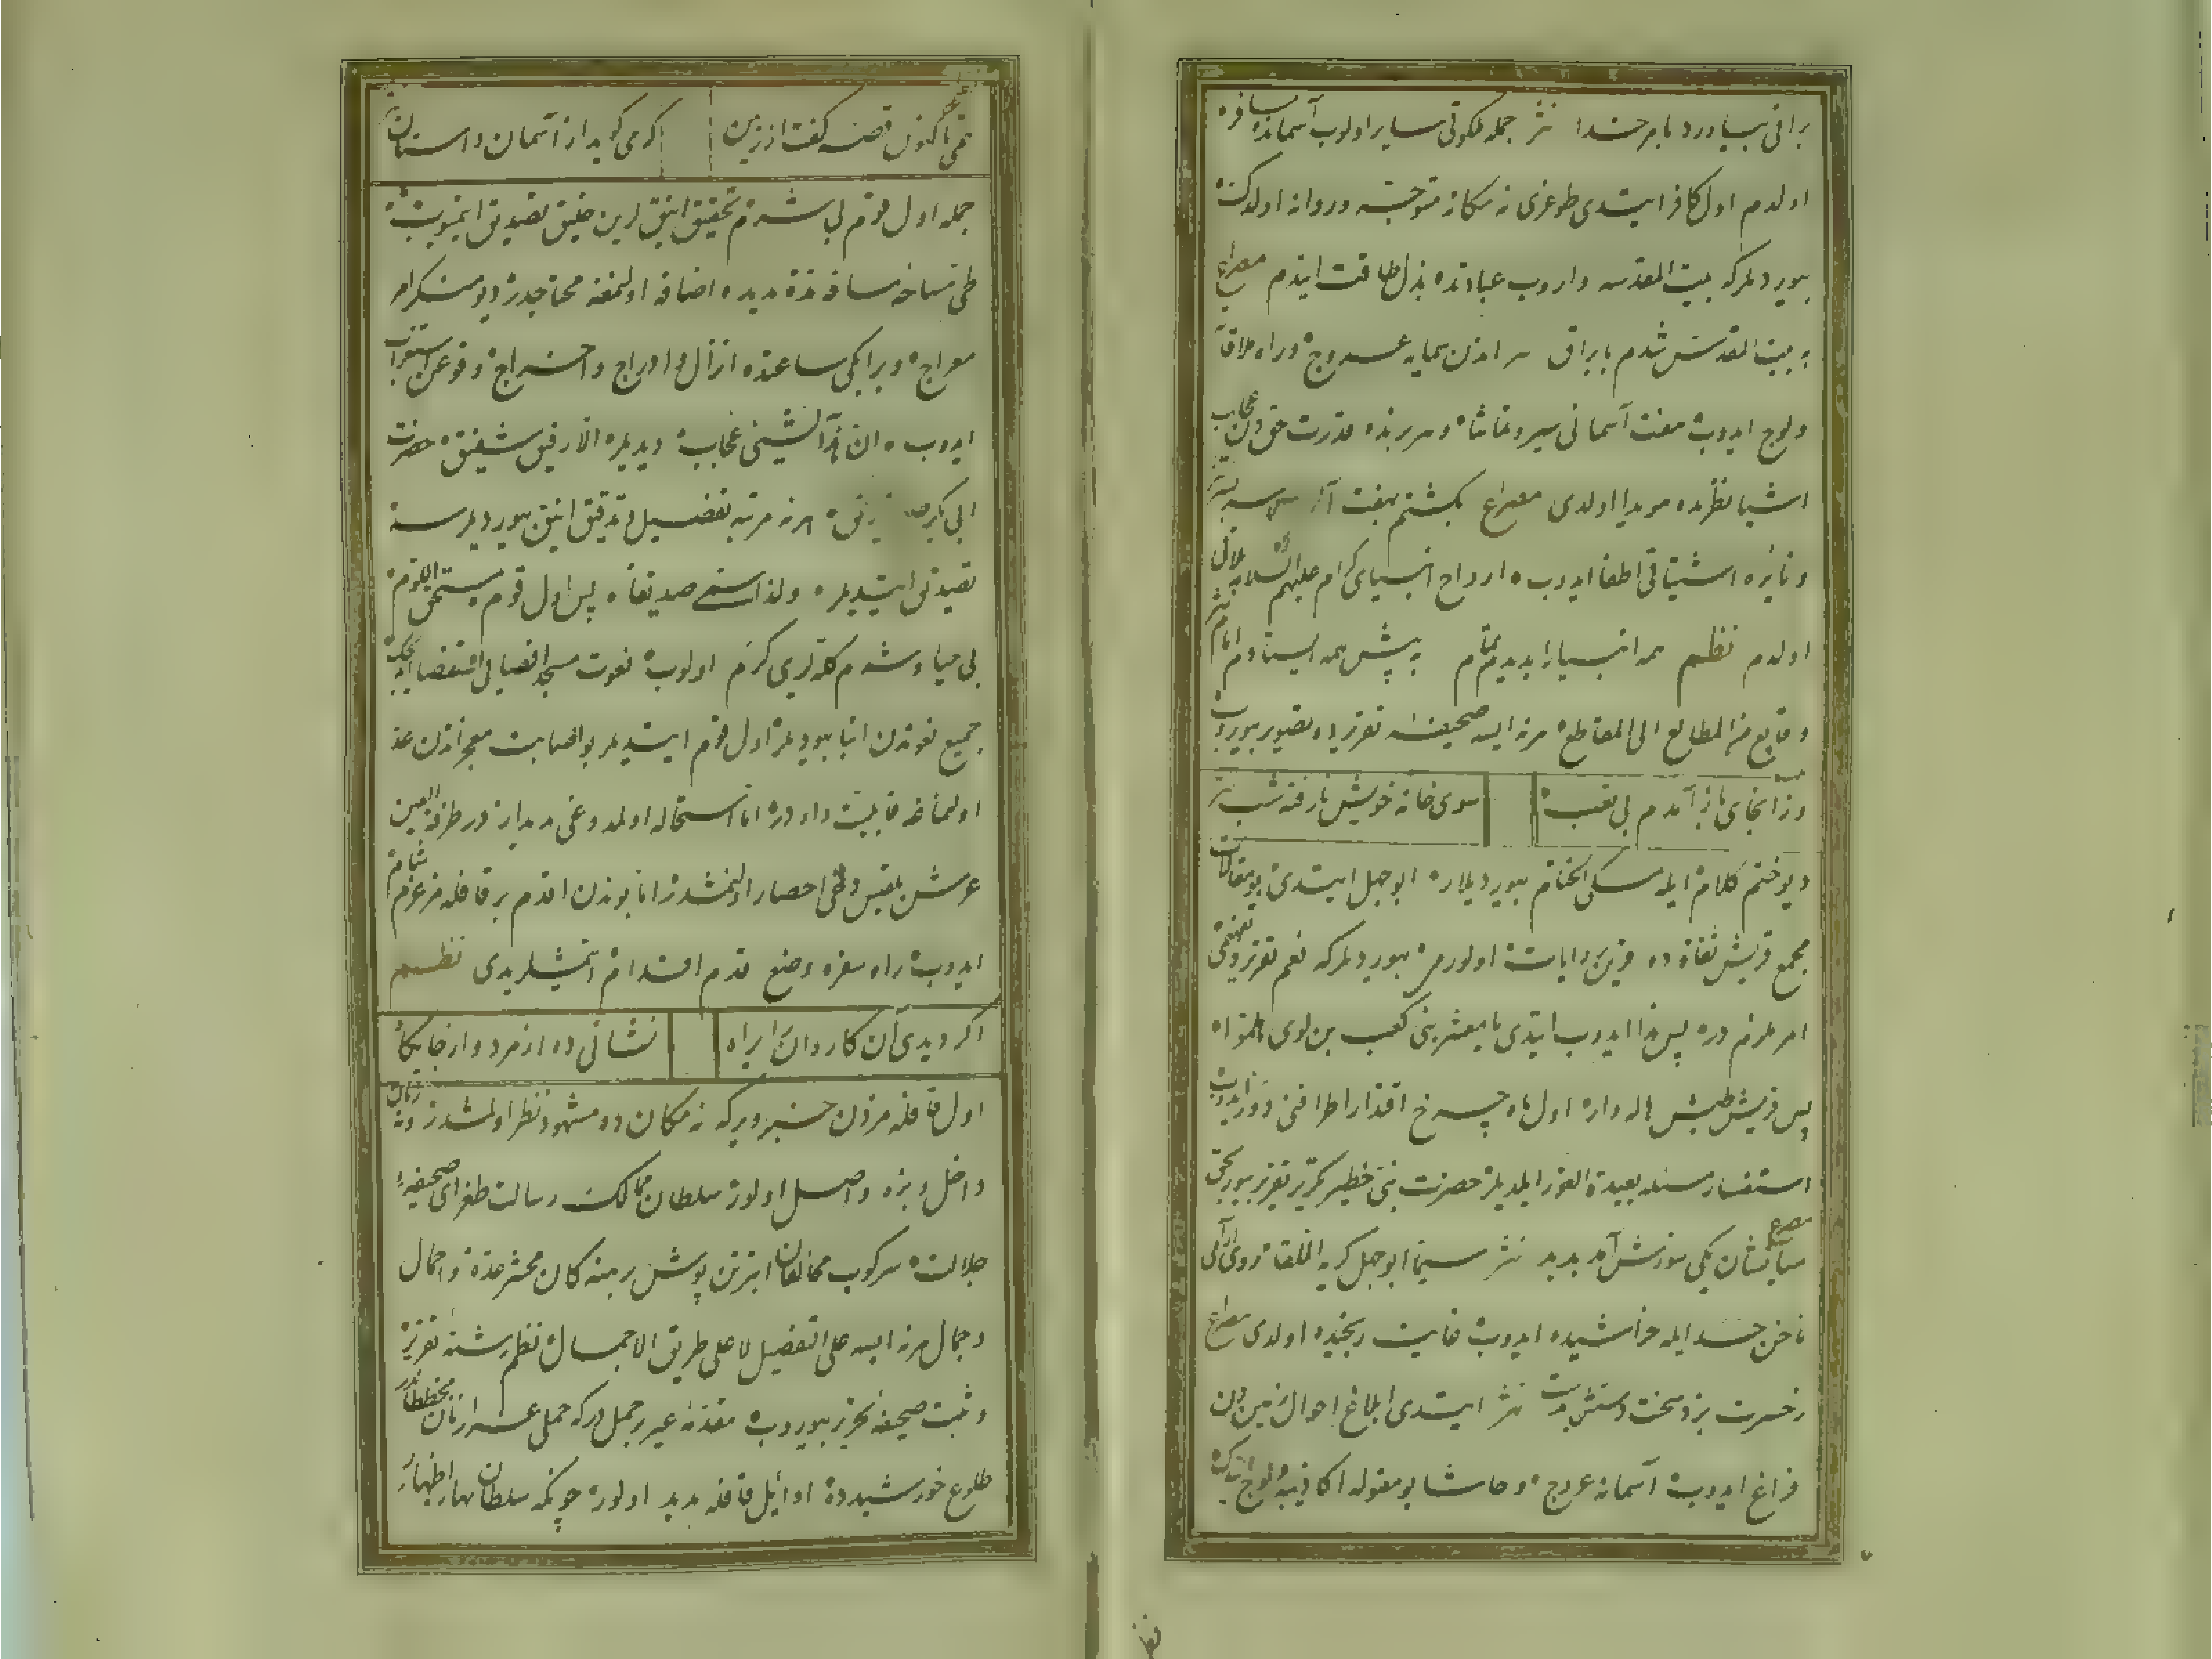 براقی بیاورد با مر خدا نثر جمله ملکوتی سایر اولوب آسمانده مسافره
اولدم اول کافر ایتدی طوغری نه مکانه متوجه و روانه اولدک
بیوردیلرکه بیت المقدسه واروب عبادتده بذل طاقت ایتدم مصراع
به بیت المقدس شدم با براق اندن سمایه عروج و راه ملاقات
ولوج ایدوب هفت آسمانی سیر و تماشا و هر برنده قدرت حق دن عجایب
اشیا نظرمده هویدا اولدی مصراع بگشتم بهفت
و نایره اشتیاقی اطفا ایدوب ارواح انبیای کرام علیهم السلامه ملاقی
اولدم نظم همه انبیا را بدیدم تمام به پیش همه ایستادم امام نثر
وقایع من المطالع الی المقاطع هر نه ایسه صحیفه تقریره تصویر بیوروب
وز انجای باز آمدم بی تعب سوی خانه خویش نارفته شب
دیو ختم کلام ایله مسکی الختام بیوردیلار ابو جهل ایتدی بو مقالات
مجمع قریش ثقاة ده قرین روایات اولورمی بیوردیلرکه نعم تقریر و تفهیمی
امر ملزم در پس ندا ایدوب ایتدی یا معشر بنی کعب بن لوی هلموا
پس قریش طیش هاله وار اول ماه چرخ اقتدار اطرافنی دور ایدوب
استفسار مسئله بعیدة الغور ایلدیلر حضرت نبی خطیر تکریر تقریر بیوریجق
مصرع میانشان یکی شورش آمد پدید نثر سیما ابو جهل کریه اللقا روی
ناخن حسد ایله خراشیده ایدوب غایت رنجیده اولدی مصراع
ز حسرت بزد سخت دستش بدست نثر ایتدی ابلاغ احوال زمین دن
فراغ ایدوب آسمانه عروج و حاشا بو مقوله اکاذیبه ولوج
تا کنون قصه گفت از زمین کرمی گوید از آسمان داستان
جمله اول قوم بی شرم تحقیق انیق دین حنیق تصدیق ایتمیوب
طی مساحه مسافه مدة مدیده اضافه اولنمغه محتاجدر دیو منکر امر
معراج و بر ایکی ساعتده انزال و ادراج و اخراج وقوعن استغراب
ایدوب ان هذا لشیئ عجاب دیدیلر الا رفیق شفیق حضرت
ابی بکر هر نه مرتبه تفصیل و تدقیق انیق بیوردیلرسه
تصدیق ایتدیلر ولذا سمی صدیقا پس اول قوم مستحق اللوم
بی حیا و شرم کله لری گرم اولوب نعوت مسجد اقصایی استقصا
جمیع نعوتدن انبا بیوردیلر اول قوم ایتدیلر بو اصابت معجزاتدن عد
اولنماغه قابلیت وار در اما استحاله اولدوغی بدیدار در طرفة العین
عرش بلقیس دخی احضار اولنمشدر اما بوندن اقدم بر قافله مز عزم شام
ایدوب راه سفره وضع قدم اقدام ایتمشلریدی نظم
اگر دیدی آن کاروان را براه نشانی ده از مرد و از جایگاه
اول قافله مزدن خبر ویرکه نه مکان ده مشهود نظر اولمشدر و نه زمان
داخل و بزه واصل اولور سلطان ممالک رسالت طغرای صحیفه
جلالت سرکوب مخالفان ابتر تن پوش برهنه کان محشر عدة و احمال
و جمال هر نه ایسه علی التفصیل لا علی طریق الاجمال نظم رشته تقریر
و ثبت صحیفه تحریر بیوروب مقدمه عیر جمل درکه حمل مخططدر
طلوع خورشیدده اوایل قافله بدید اولور چونکه سلطان بهار اظهار